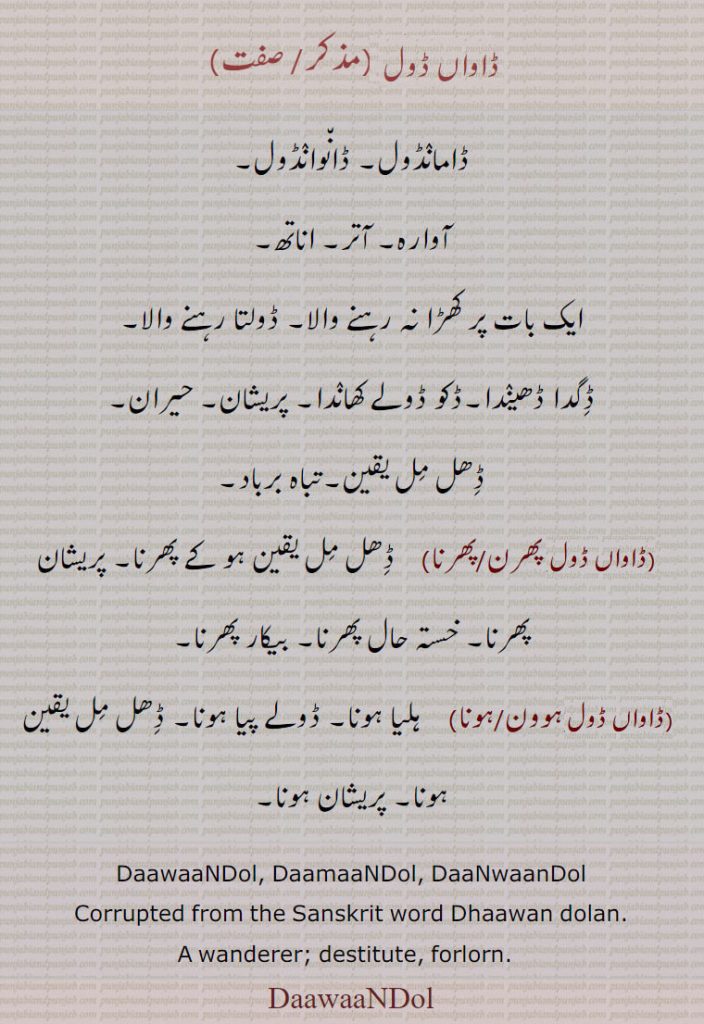 ڈاواں ڈول (مذکر/ صفت)
ڈامانڈول۔ ڈانّوانڈول۔
آوارہ۔ آتر۔ اناتھ۔
ایک بات پر کھڑا نہ رہنے والا۔ ڈولتا رہنے والا۔
ڈِگدا ڈھیندا۔ڈکو ڈولے کھاندا۔ پریشان۔ حیران۔
ڈِھل مِل یقین۔تباہ برباد۔
(ڈاواں ڈول پھرن/پھرنا) ڈِھل مِل یقین ہو کے پھرنا۔ پریشان
پھرنا۔ خستہ حال پھرنا۔ بیکار پھرنا۔
(ڈاواں ڈول ہوون/ہونا) ہلیا ہونا۔ ڈولے پیا ہونا۔ ڈِھل مِل یقین
ہونا۔ پریشان ہونا۔
DaawaaNDol, DaamaaNDol, DaaNwaanDol
Corrupted from the Sanskrit word Dhaawan dolan.
A wanderer; destitute, forlorn.
DaawaaNDol